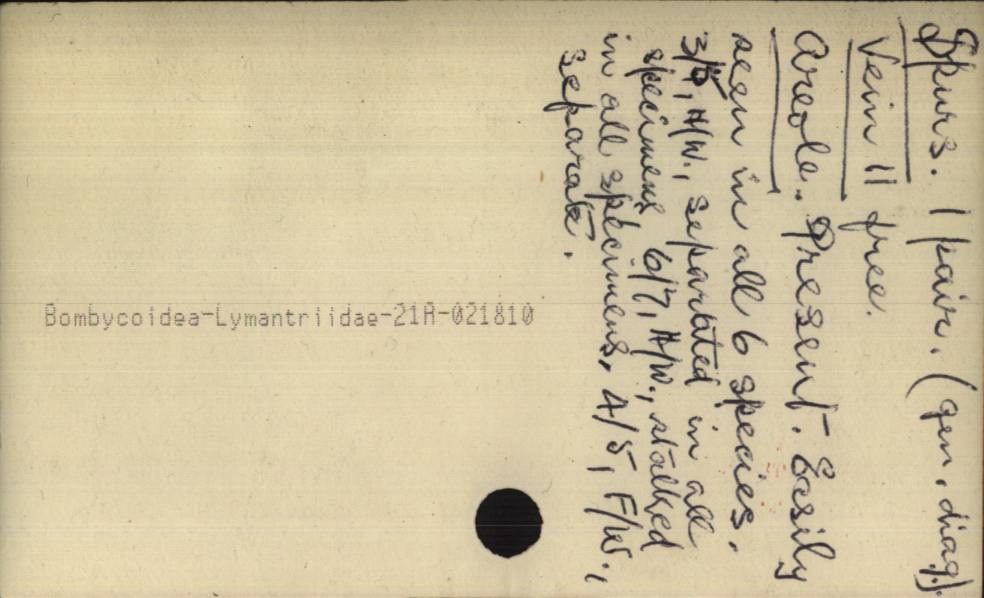 Spurs. 1 pair. (gen. diag.).
Vein 11 free.
Areole. Present. Easily
seen in all 6 species.
3/5, H/W., separated in all
specimens 6/7, H/W., stalked
in all specimens, 4/5, F/W.,
separate.
Bombycoidea-Lymantriidae-21A-021810